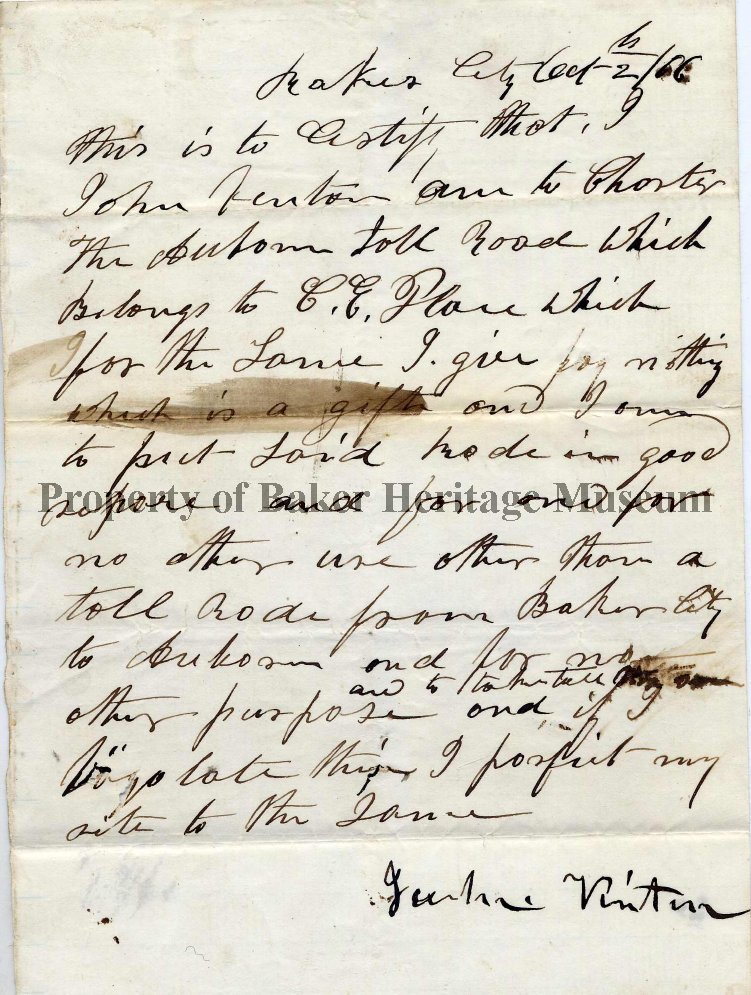 Baker City Oct 2/66
this is to Certify that, I
John Venton am to Charter
the Auborn toll Road which
Belongs to C. E. Place which
I for the Same I. give pay nothing
which is a gift and I am
to put Said Rode in good
Property of Baker Heritage Museum
repare and for and for
no other use other than a
toll Rode from Baker City
to Auborn and for no
and to take toll
other purpose and if I
this I forfeit my
rite to the Same
John Vinton